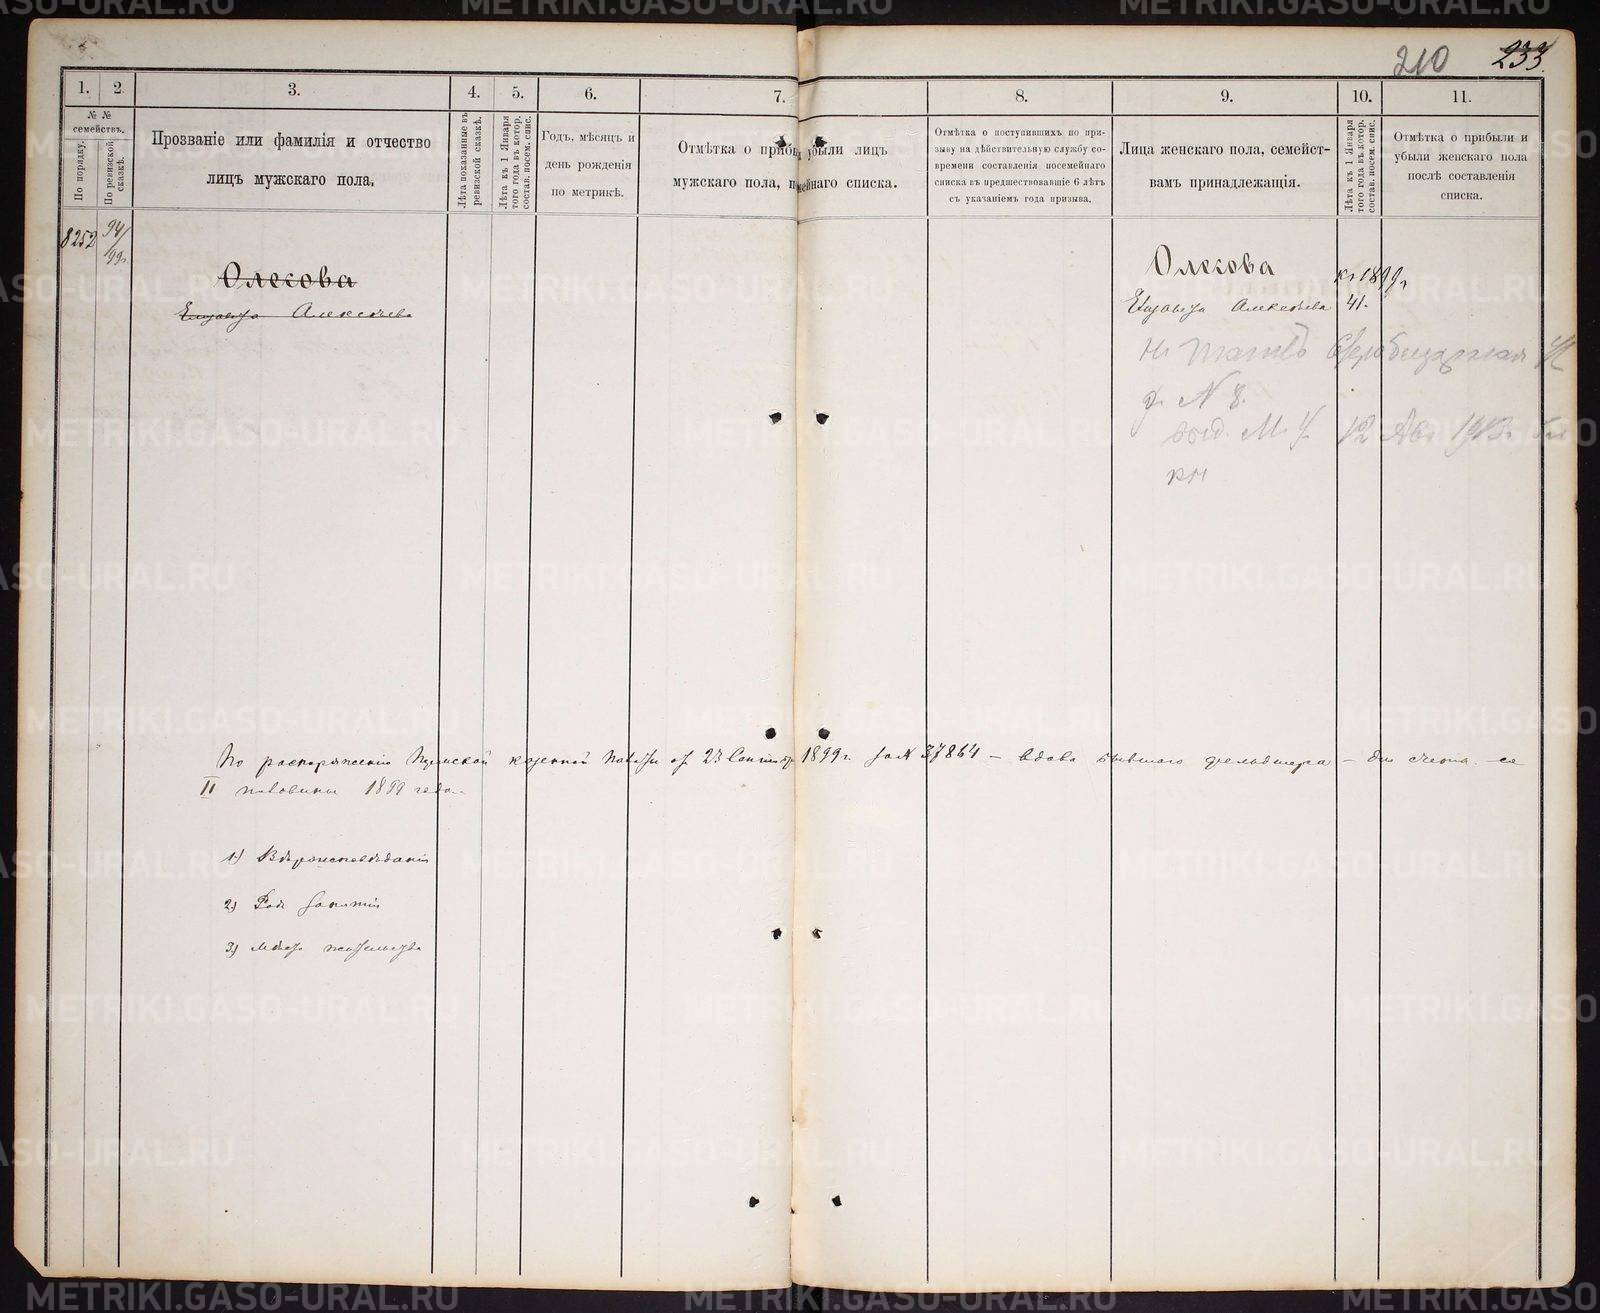 210 233
1. 2 3. 4. 5. 6. 7. 8. 9. 10. 11.
№ №
семействъ.
По порядку.
По ревизской сказкѣ.
Прозваніе или фамилія и отчество
лицъ мужскаго пола.
Лѣта показанные въ
ревизской сказкѣ.
Лѣта къ 1 Января
того года въ котор.
состав. посем. спис.
Годъ, мѣсяцъ и
день рожденія
по метрикѣ.
Отмѣтка о прибы убыли лицъ
мужскаго пола, п мейнаго списка.
Отмѣтка о поступившихъ по при-
зыву на дѣйствительную службу со-
времени составленія посемейнаго
списка въ предшествовавшіе 6 лѣтъ
съ указаніемъ года призыва.
Лица женскаго пола, семейст-
вамъ принадлежащія.
Лѣта къ 1 Января
того года въ котор.
состав. посем. спис.
Отмѣтка о прибыли и
убыли женскаго пола
послѣ составленія
списка.
8252 94/99г.
Олесова
Елизавета Алексѣева
Олесова
къ 1899г.
Елизавета Алексѣева 41.
д. № 8.
12 Авг 1913г.
По распоряженію Пермской казенной Палаты от 23 Сентября 1899г. за № 37864 — вдова бывшаго фельдшера — для счета со
II половины 1899 года.
1) Вѣроисповѣданіе
2) Родъ занятій
3) Мѣсто жительства
METRIKI.GASO-URAL.RU